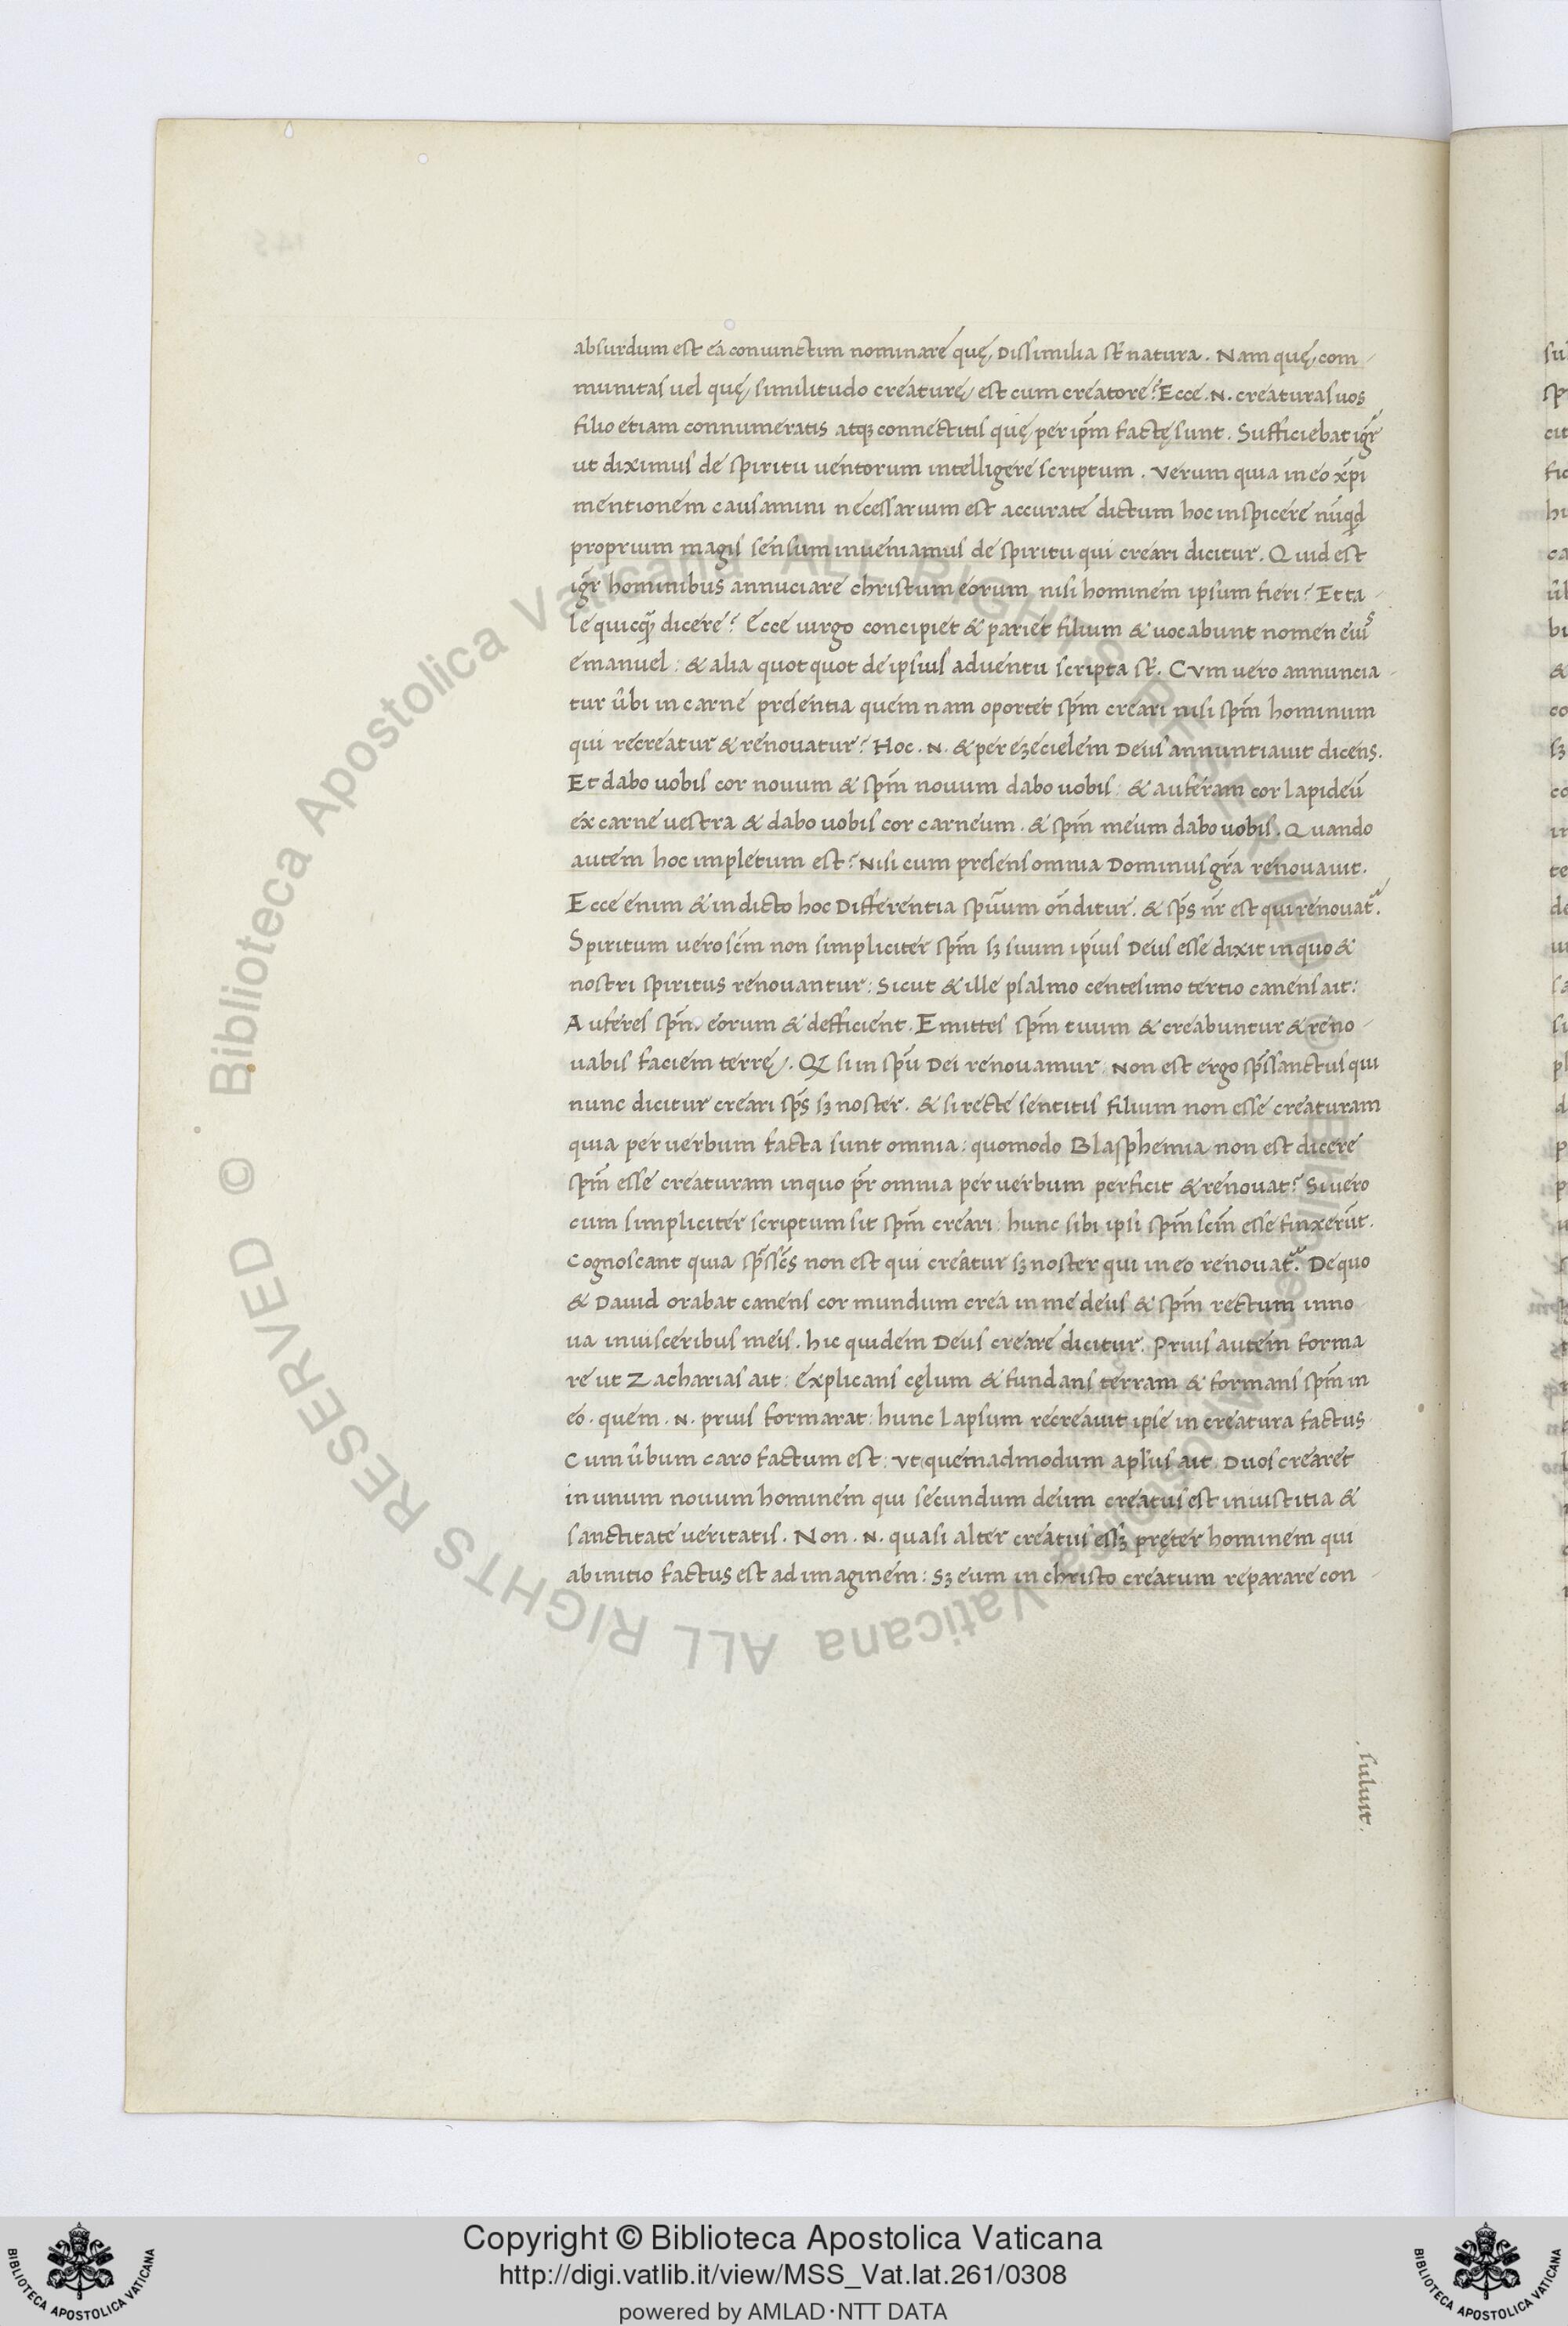 absurdum est ea coniunctim nominare quę dissimilia st̄ natura. Nam quę com-
munitas uel quę similitudo creaturę est cum creatore? Ecce .N. creaturas uos
filio etiam connumeratis atq; connectitis quę per ip̄m factę sunt. Sufficiebat igr̄
ut diximus de spiritu uentorum intelligere scriptum. Verum quia in eo xp̄i
mentionem causamini necessarium est accurate dictum hoc inspicere nūqd
proprium magis sensum inueniamus de spiritu qui creari dicitur. Quid est
igr̄ hominibus annuciare christum eorum nisi hominem ipsum fieri? Et ta-
le quicq̄ dicere? Ecce uirgo concipiet & pariet filium & uocabunt nomen eiuˢ
emanuel: & alia quotquot de ipsius aduentu scripta st̄. Cum uero annuncia-
tur u̅bi in carne presentia quem nam oportet sp̄m creari nisi sp̄m hominum
qui recreatur & renouatur? Hoc .N. & per ezecielem Deus annuntiauit dicens.
Et dabo uobis cor nouum & sp̄m nouum dabo uobis: & auferam cor lapideū
ex carne uestra & dabo uobis cor carneum. & sp̄m meum dabo uobis. Quando
autem hoc impletum est? Nisi cum presens omnia Dominus gr̄a renouauit.
Ecce enim & in dicto hoc Differentia spūum on̄ditur. & sp̄s nr̄ est qui renouat᷑.
Spiritum uero sc̄m non simpliciter sp̄m sʒ suum ip̄ius Deus esse dixit in quo &
nostri spiritus renouantur: Sicut & ille psalmo centesimo tertio canens ait:
Auferes sp̄m eorum & defficient. Emittes sp̄m tuum & creabuntur & reno-
uabis faciem terrę. Qđ si in spū Dei renouamur: Non est ergo sp̄s sanctus qui
nunc dicitur creari sp̄s sʒ noster. & si recte sentitis filium non esse creaturam
quia per uerbum facta sunt omnia: quomodo Blasphemia non est dicere
sp̄m esse creaturam in quo pr̄ omnia per uerbum perficit & renouat? Si uero
cum simpliciter scriptum sit sp̄m creari: hunc sibi ipsi sp̄m sc̄m esse finxerūt.
Cognoscant quia sp̄s sc̄s non est qui creatur sʒ noster qui in eo renouat᷑. De quo
& Dauid orabat canens cor mundum crea in me deus & sp̄m rectum inno-
ua in uisceribus meis. hic quidem Deus creare dicitur. Prius autem forma
re ut Zacharias ait: Explicans cęlum & fundans terram & formans sp̄m in
eo. quem .N. prius formarat: hunc lapsum recreauit ipse in creatura factus
Cum u̅bum caro factum est: Vt quemadmodum aplus ait. Duos crearet
in unum nouum hominem qui secundum deum creatus est in iustitia &
sanctitate ueritatis. Non .N. quasi alter creatus essʒ pręter hominem qui
ab initio factus est ad imaginem: Sʒ eum in christo creatum reparare con-
.suluit.
Copyright © Biblioteca Apostolica Vaticana
http://digi.vatlib.it/view/MSS_Vat.lat.261/0308
powered by AMLAD·NTT DATA